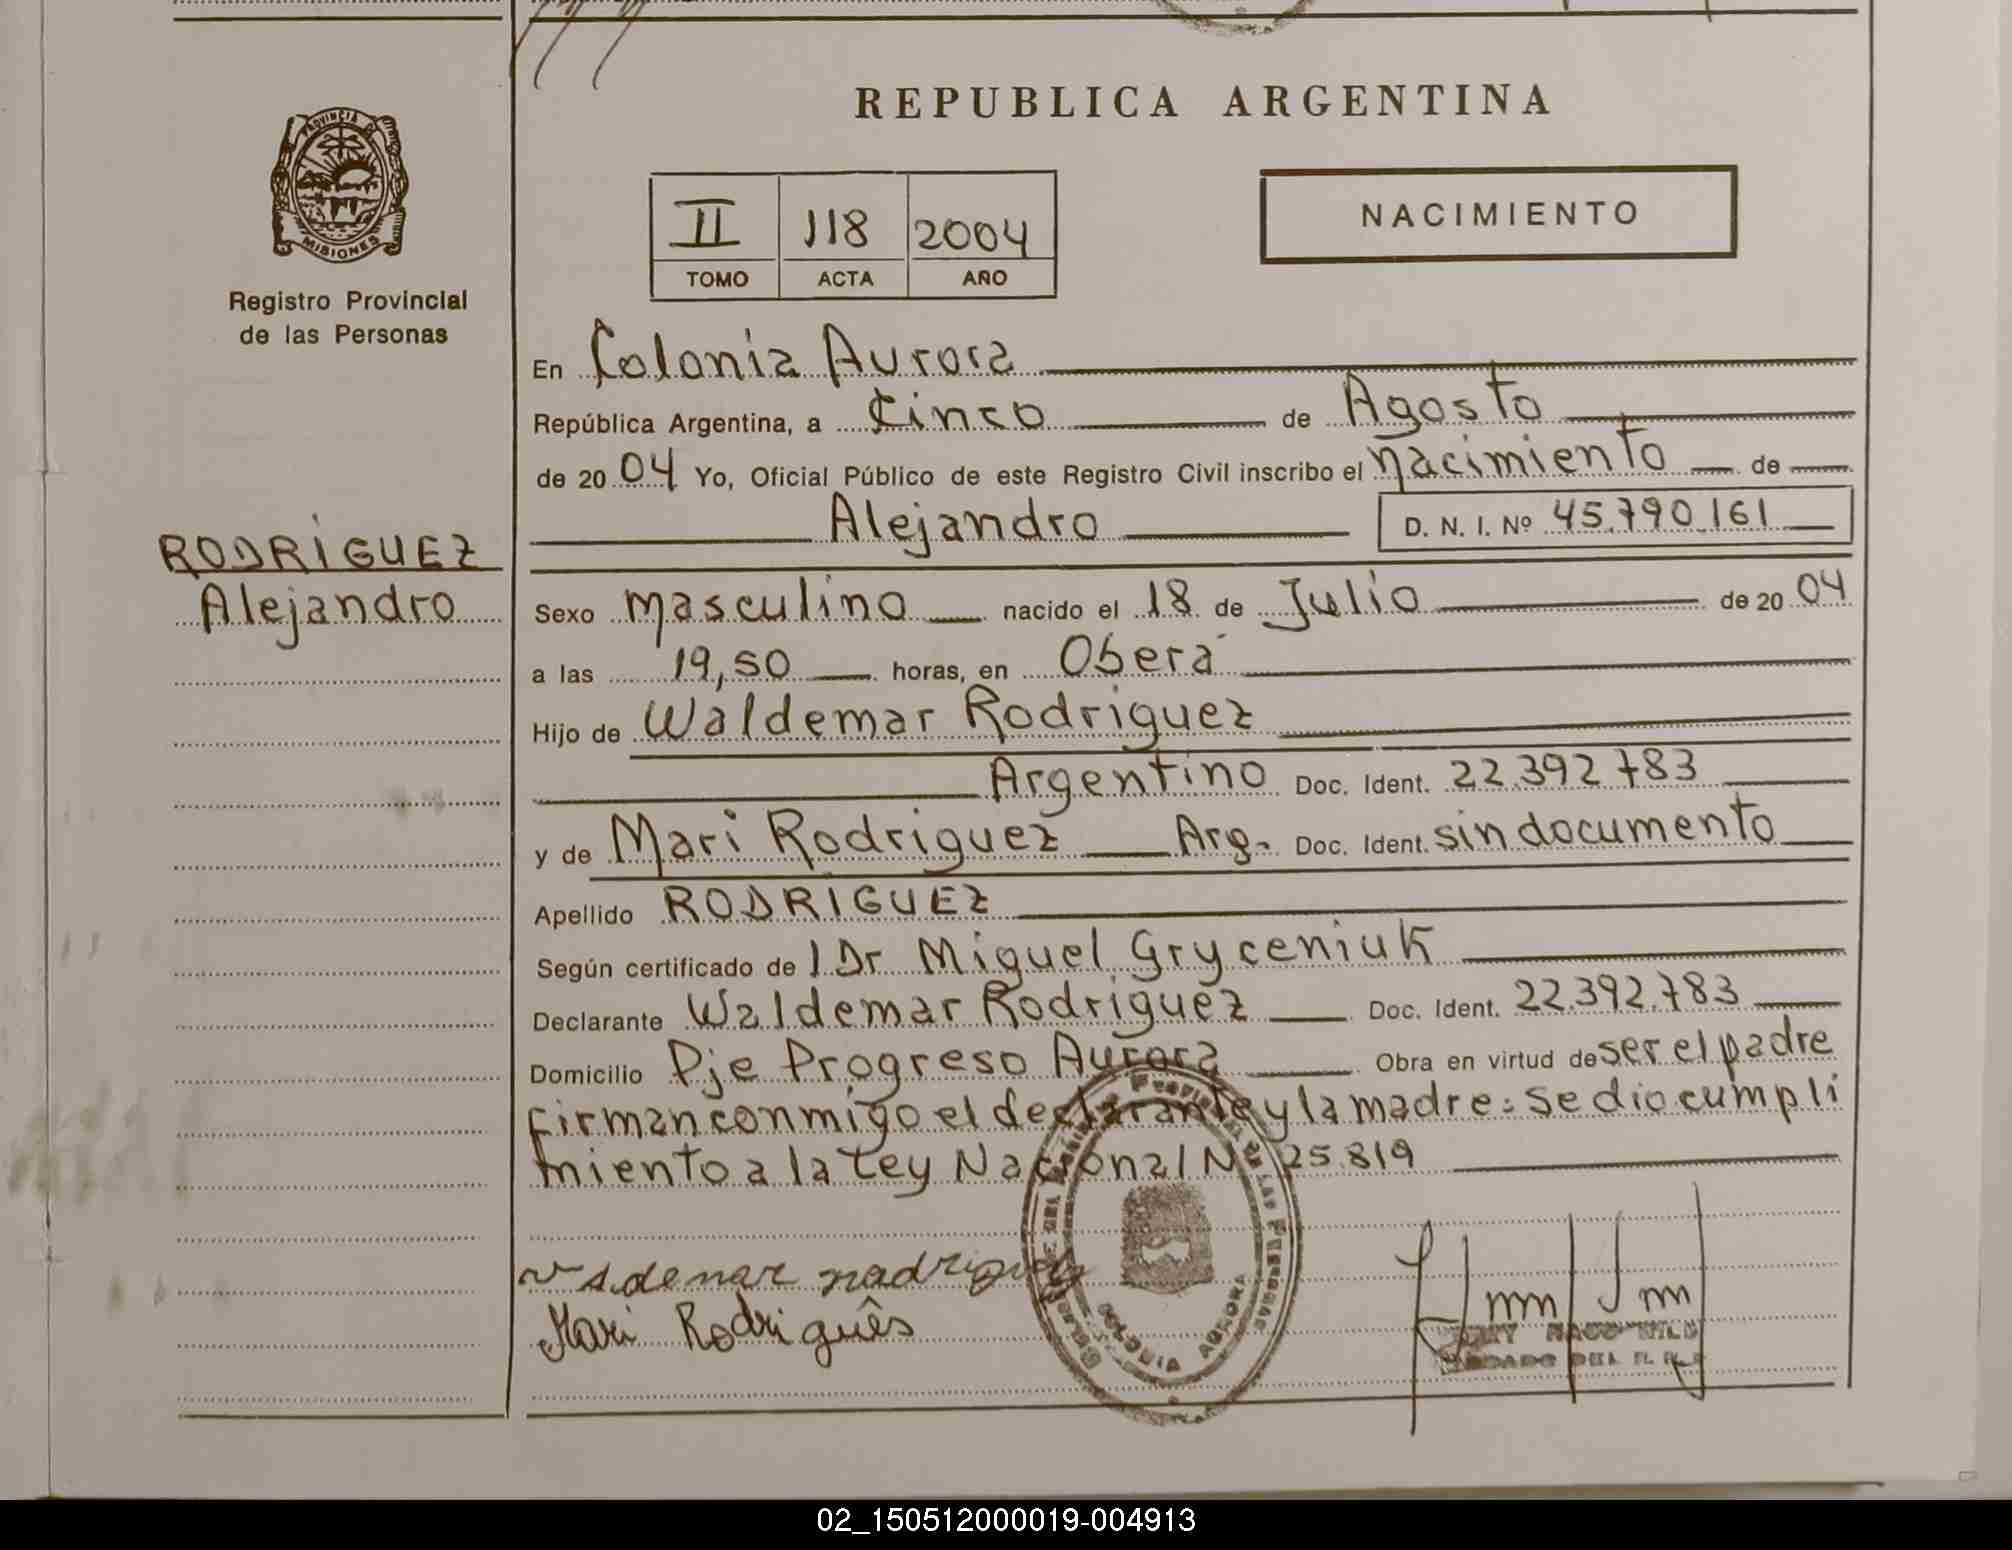 REPUBLICA ARGENTINA
PROVINCIA DE
MISIONES
Registro Provincial
de las Personas
II 118 2004
TOMO ACTA AÑO
NACIMIENTO
En Colonia Aurora
República Argentina, a Cinco de Agosto
de 2004 Yo, Oficial Público de este Registro Civil inscribo el nacimiento de
Alejandro D. N. I. Nº 45.790.161
RODRIGUEZ
Alejandro
Sexo masculino nacido el 18 de Julio de 2004
a las 19,50 horas, en Oberá
Hijo de Waldemar Rodriguez
Argentino Doc. Ident. 22.392.783
y de Mari Rodriguez Arg. Doc. Ident. sin documento
Apellido RODRIGUEZ
Según certificado de l Dr Miguel Gryceniuk
Declarante Waldemar Rodriguez Doc. Ident. 22.392.783
Domicilio Pje Progreso Aurora Obra en virtud de ser el padre
firman conmigo el declarante y la madre: se dio cumpli
miento a la Ley Nacional Nº 25.819
Mari Rodriguês
COLONIA AURORA
02_150512000019-004913